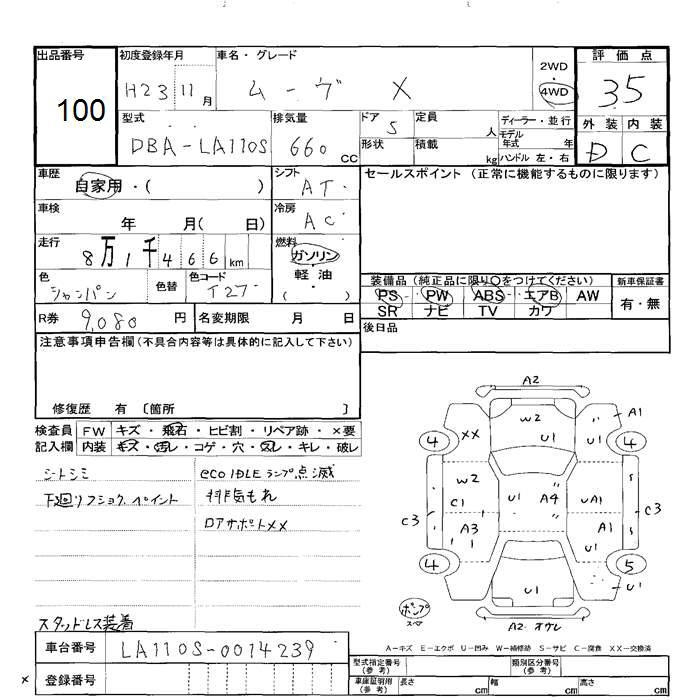 出品番号 初度登録年月 車名・グレード 2WD 評価点
100 H23 11月 ムーヴ X 4WD 3.5
型式 排気量 ドア 定員 ディーラー・並行 外装 内装
DBA-LA110S 660 CC 5 人 モデル年式 年 D C
形状 積載 kg ハンドル 左・右
車歴 シフト セールスポイント (正常に機能するものに限ります)
自家用・( ) AT
車検 冷房
年 月( 日) AC
走行 燃料
8万1千466km ガソリン
色 色替 色コード 軽油 装備品 (純正品に限り○をつけてください) 新車保証書
シャンパン T27 ( ) PS PW ABS エアB AW 有・無
SR ナビ TV カワ
R券 9,080 円 名変期限 月 日 後日品
注意事項申告欄(不具合内容等は具体的に記入して下さい)
修復歴 有 〔箇所 〕
検査員 FW キズ・飛石・ヒビ割・リペア跡・×要
記入欄 内装 キズ・汚レ・コゲ・穴・スレ・キレ・破レ
シートシミ eco IDLE ランプ点滅
下廻リフショク、ペイント 排気もれ
ロアサポートXX
スタッドレス装着
A2
W2 A1
XX U1 U1
4 4
W2
C1 U1 A4 UA1
C3 C3
A3 A1
1 U1
4 5
U1 U1
ポンプ
スペア
A2 オサレ
車台番号 LA110S-0014239
A-キズ E-エクボ U-凹み W-補修跡 S-サビ C-腐食 XX-交換済
× 登録番号
型式指定番号(参考) 類別区分番号(参考)
車庫証明用(参考) 長さ cm 幅 cm 高さ cm